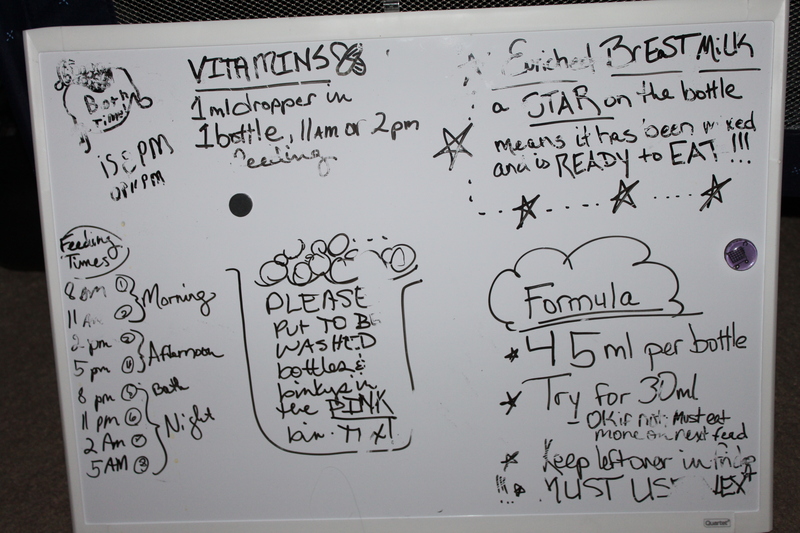 Bath
Time
is 8 PM
or 11 PM
VITAMINS
1 ml dropper in
1 bottle, 11 AM or 2 pm
Feeding
Enriched BrEaST MiLK
a STAR on the bottle
means it has been mixed
and is READY to EAT !!!
Feeding
Times
8 am 1
11 Am 2
Morning
2 pm 3
5 pm 4
Afternoon
8 pm 5 Bath
11 pm 6
2 Am 7
5 AM 8
Night
PLEASE
PUT TO BE
WASHED
bottles &
binkys in
the PINK
bin
Formula
45 ml per bottle
Try for 30 ml
- OK if not. Must eat
more on next feed
Keep leftover in fridge
MUST USE NEXT
Quartet